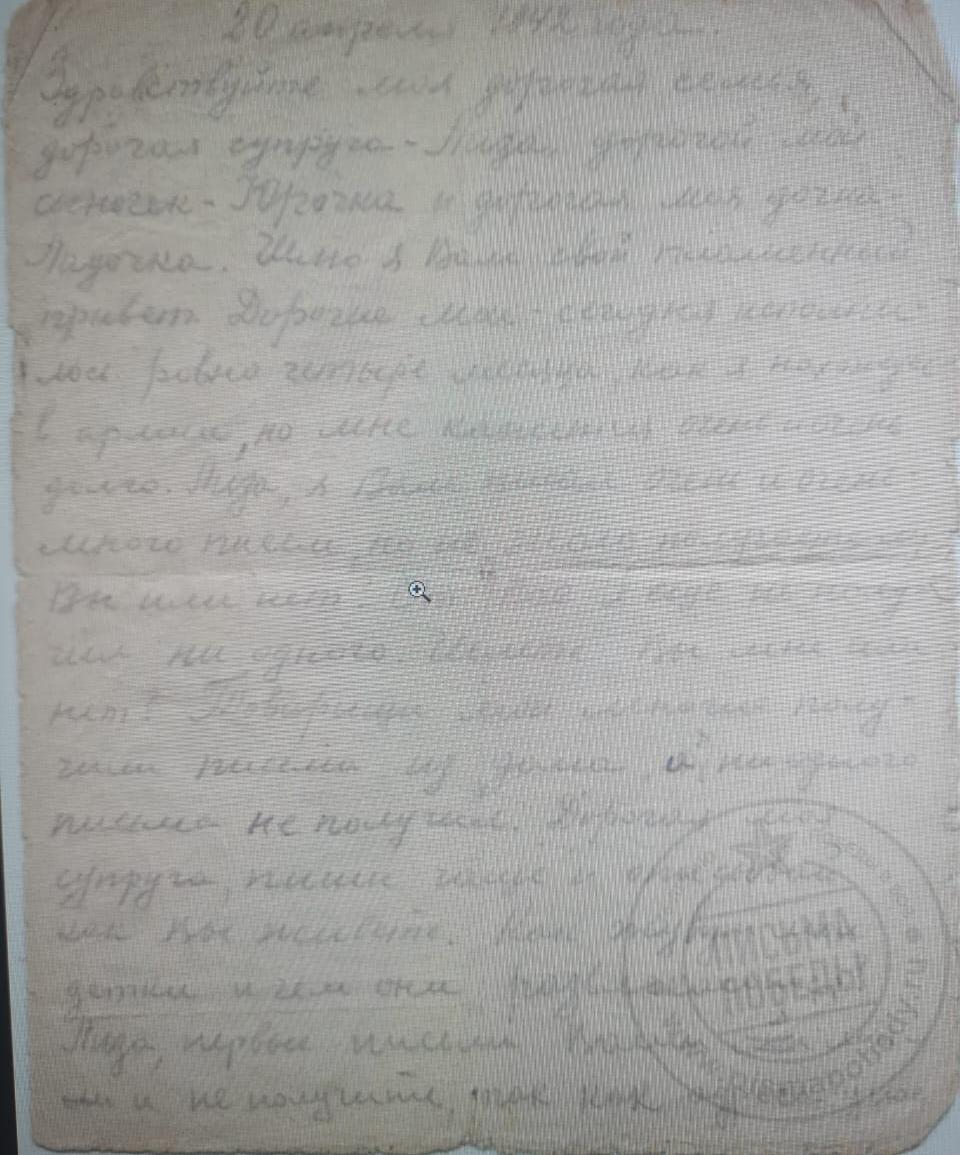 20 апреля 1942 года.
Здравствуйте моя дорогая семья,
дорогая супруга - Лиза, дорогой мой
сыночек - Юрочка и дорогая моя дочка-
Ладочка. Шлю я Вам свой пламенный
привет. Дорогие мои - сегодня исполни-
лось ровно четыре месяца, как я
в армии, но мне кажется очень и очень
долго. Лиза, я Вам писал очень и очень
много писем, но не знаю получаете
Вы или нет. я еще не полу-
чил ни одного. Пишете Вы мне или
нет? Товарищи мои многие полу-
чили письма из дома, а ни одного
письма не получил. Дорогая моя
супруга, пиши чаще и
как Вы живете. Как живут
детки и чем они
Лиза, первые письма Вы
и не получите, так как
ПИСЬМА
ПОБЕДЫ